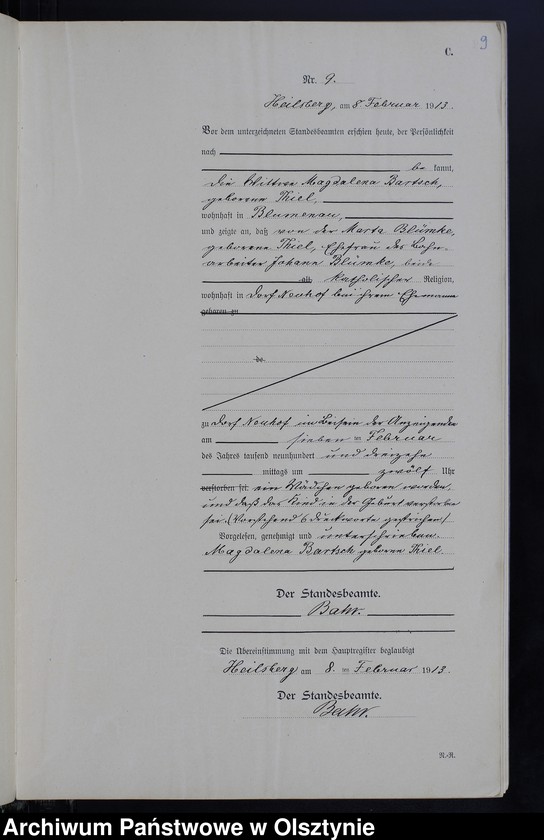 9
C.
Nr. 9.
Heilsberg, am 8. Februar 1913.
Vor dem unterzeichneten Standesbeamten erschien heute, der Persönlichkeit
nach
be kannt,
die Wittwe Magdalena Bartsch,
geborene Thiel,
wohnhaft in Blumenau,
und zeigte an, daß von der Marta Blümke,
geborene Thiel, Ehefrau des Bahn-
arbeiter Johann Blümke, beide
alt, katholischer Religion,
wohnhaft in Dorf Neuhof bei ihrem Ehemanne
geboren zu
de
zu Dorf Neuhof im Beisein der Anzeigenden
am sieben ten Februar
des Jahres tausend neunhundert und dreizehn
mittags um zwölf Uhr
verstorben sei. ein Mädchen geboren worden,
und daß das Kind in der Geburt verstorben
sei. (Vorstehend 6 Druckworte gestrichen)
Vorgelesen, genehmigt und unterschrieben.
Magdalena Bartsch geborene Thiel
Der Standesbeamte.
Die Übereinstimmung mit dem Hauptregister beglaubigt
Heilsberg am 8. ten Februar 1913.
Der Standesbeamte.
R.-R.
Archiwum Państwowe w Olsztynie